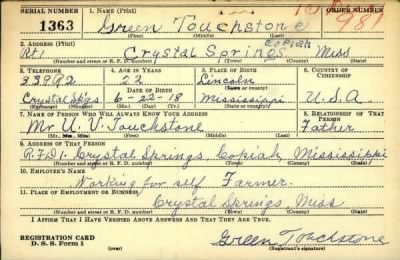 SERIAL NUMBER 1. NAME (Print) ORDER NUMBER
1363 Green Touchstone 981
(First) (Middle) (Last)
2. ADDRESS (Print)
Rt 1 Crystal Springs Copiah Miss
(Number and street or R. F. D. number) (Town) (County) (State)
3. TELEPHONE 4. AGE IN YEARS 5. PLACE OF BIRTH 6. COUNTRY OF CITIZENSHIP
22 Lincoln
DATE OF BIRTH (Town or county)
Crystal Spgs 6-22-18 Mississippi U.S.A.
(Exchange) (Number) (Mo.) (Day) (Yr.) (State or country)
7. NAME OF PERSON WHO WILL ALWAYS KNOW YOUR ADDRESS 8. RELATIONSHIP OF THAT PERSON
Mr. Touchstone Father
(Mr., Mrs., Miss) (First) (Middle) (Last)
9. ADDRESS OF THAT PERSON
R.F.D. 1 Crystal Springs, Copiah, Mississippi
(Number and street or R. F. D. number) (Town) (County) (State)
10. EMPLOYER'S NAME
Working for self Farmer.
11. PLACE OF EMPLOYMENT OR BUSINESS
Crystal Springs, Miss
(Number and street or R. F. D. number) (Town) (County) (State)
I AFFIRM THAT I HAVE VERIFIED ABOVE ANSWERS AND THAT THEY ARE TRUE.
REGISTRATION CARD
D. S. S. Form 1 (over) Green Touchstone
(Registrant's signature)